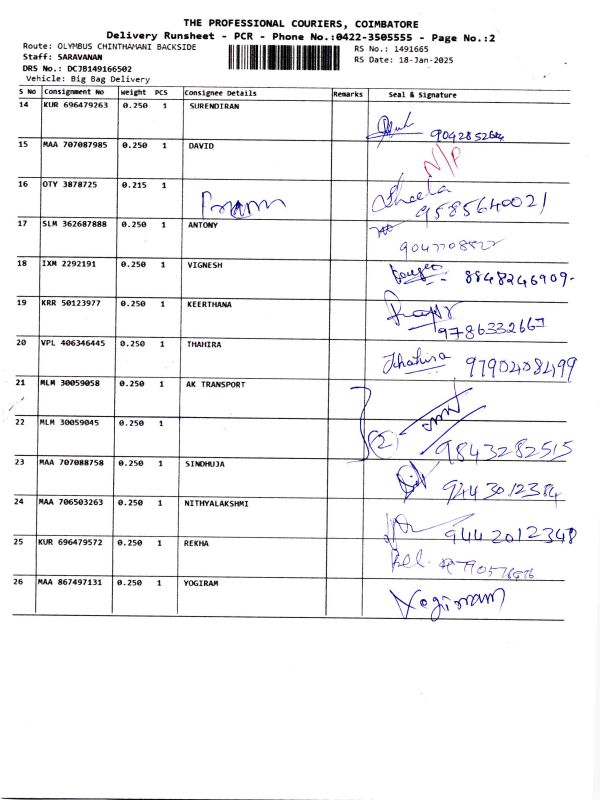 THE PROFESSIONAL COURIERS, COIMBATORE
Delivery Runsheet - PCR - Phone No.:0422-3505555 - Page No.:2
Route: OLYMBUS CHINTHAMANI BACKSIDE
RS No.: 1491665
Staff: SARAVANAN
RS Date: 18-Jan-2025
DRS No.: DCJB149166502
Vehicle: Big Bag Delivery
S No Consignment No Weight PCS Consignee Details Remarks Seal & Signature
14 KUR 696479263 0.250 1 SURENDIRAN
15 MAA 707087985 0.250 1 DAVID N/P
16 OTY 3878725 0.215 1 Sheela 9585640021
17 SLM 362687888 0.250 1 ANTONY
18 IXM 2292191 0.250 1 VIGNESH 8848246909-
19 KRR 50123977 0.250 1 KEERTHANA 9786332667
20 VPL 406346445 0.250 1 THAHIRA Thahira 9790408499
21 MLM 30059058 0.250 1 AK TRANSPORT
22 MLM 30059045 0.250 1 (2) 9843282515
23 MAA 707088758 0.250 1 SINDHUJA 9443012384
24 MAA 706503263 0.250 1 NITHYALAKSHMI 9442012348
25 KUR 696479572 0.250 1 REKHA
26 MAA 867497131 0.250 1 YOGIRAM Yogiram